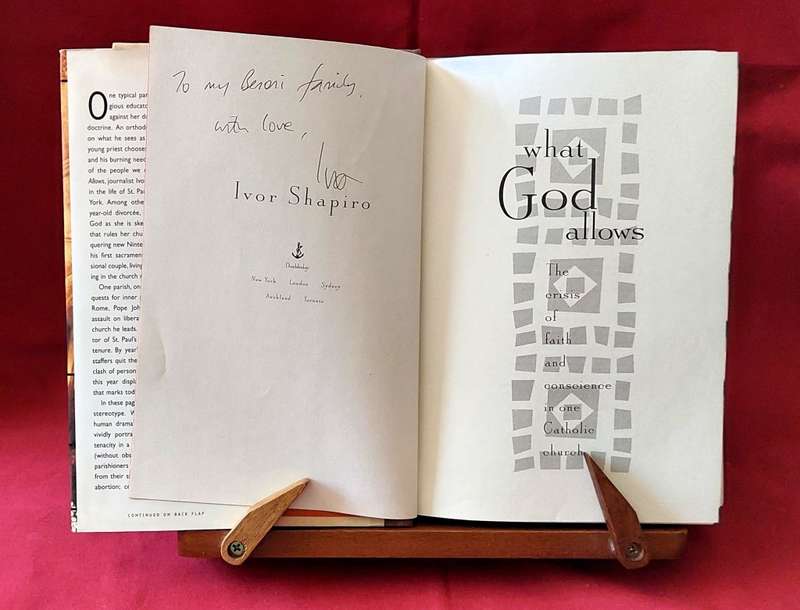 One typical par
gious educato
against her d
doctrine. An orthod
on what he sees as
young priest choose
and his burning need
of the people we
Allows, journalist Ivo
in the life of St. Pa
York. Among othe
year-old divorcée,
God as she is ske
that rules her chu
quering new Ninte
his first sacramen
sional couple, living
ing in the church
One parish, on
quests for inner
Rome, Pope Joh
assault on libera
church he leads.
tor of St. Paul's
tenure. By year'
staffers quit the
clash of person
this year displa
that marks toda
In these pag
stereotype. W
human drama
vividly portra
tenacity in a
(without obs
parishioners
from their s
abortion; c
CONTINUED ON BACK FLAP
To my family,
with love,
Ivor
Ivor Shapiro
Doubleday
New York London Sydney
Auckland Toronto
what
God
allows
The
crisis
of
faith
and
conscience
in one
Catholic
church